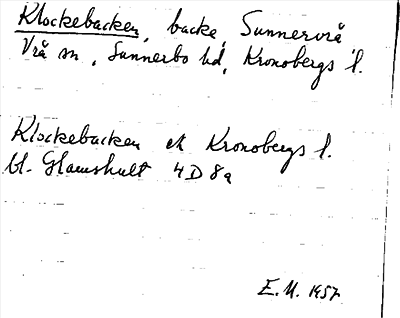 Klockebacken, backe, Sunnervrå
Vrå sn, Sunnerbo hd, Kronobergs l.
Klockebacken ek Kronobergs l.
bl. Glamshult 4D 8a
E.U. 1957